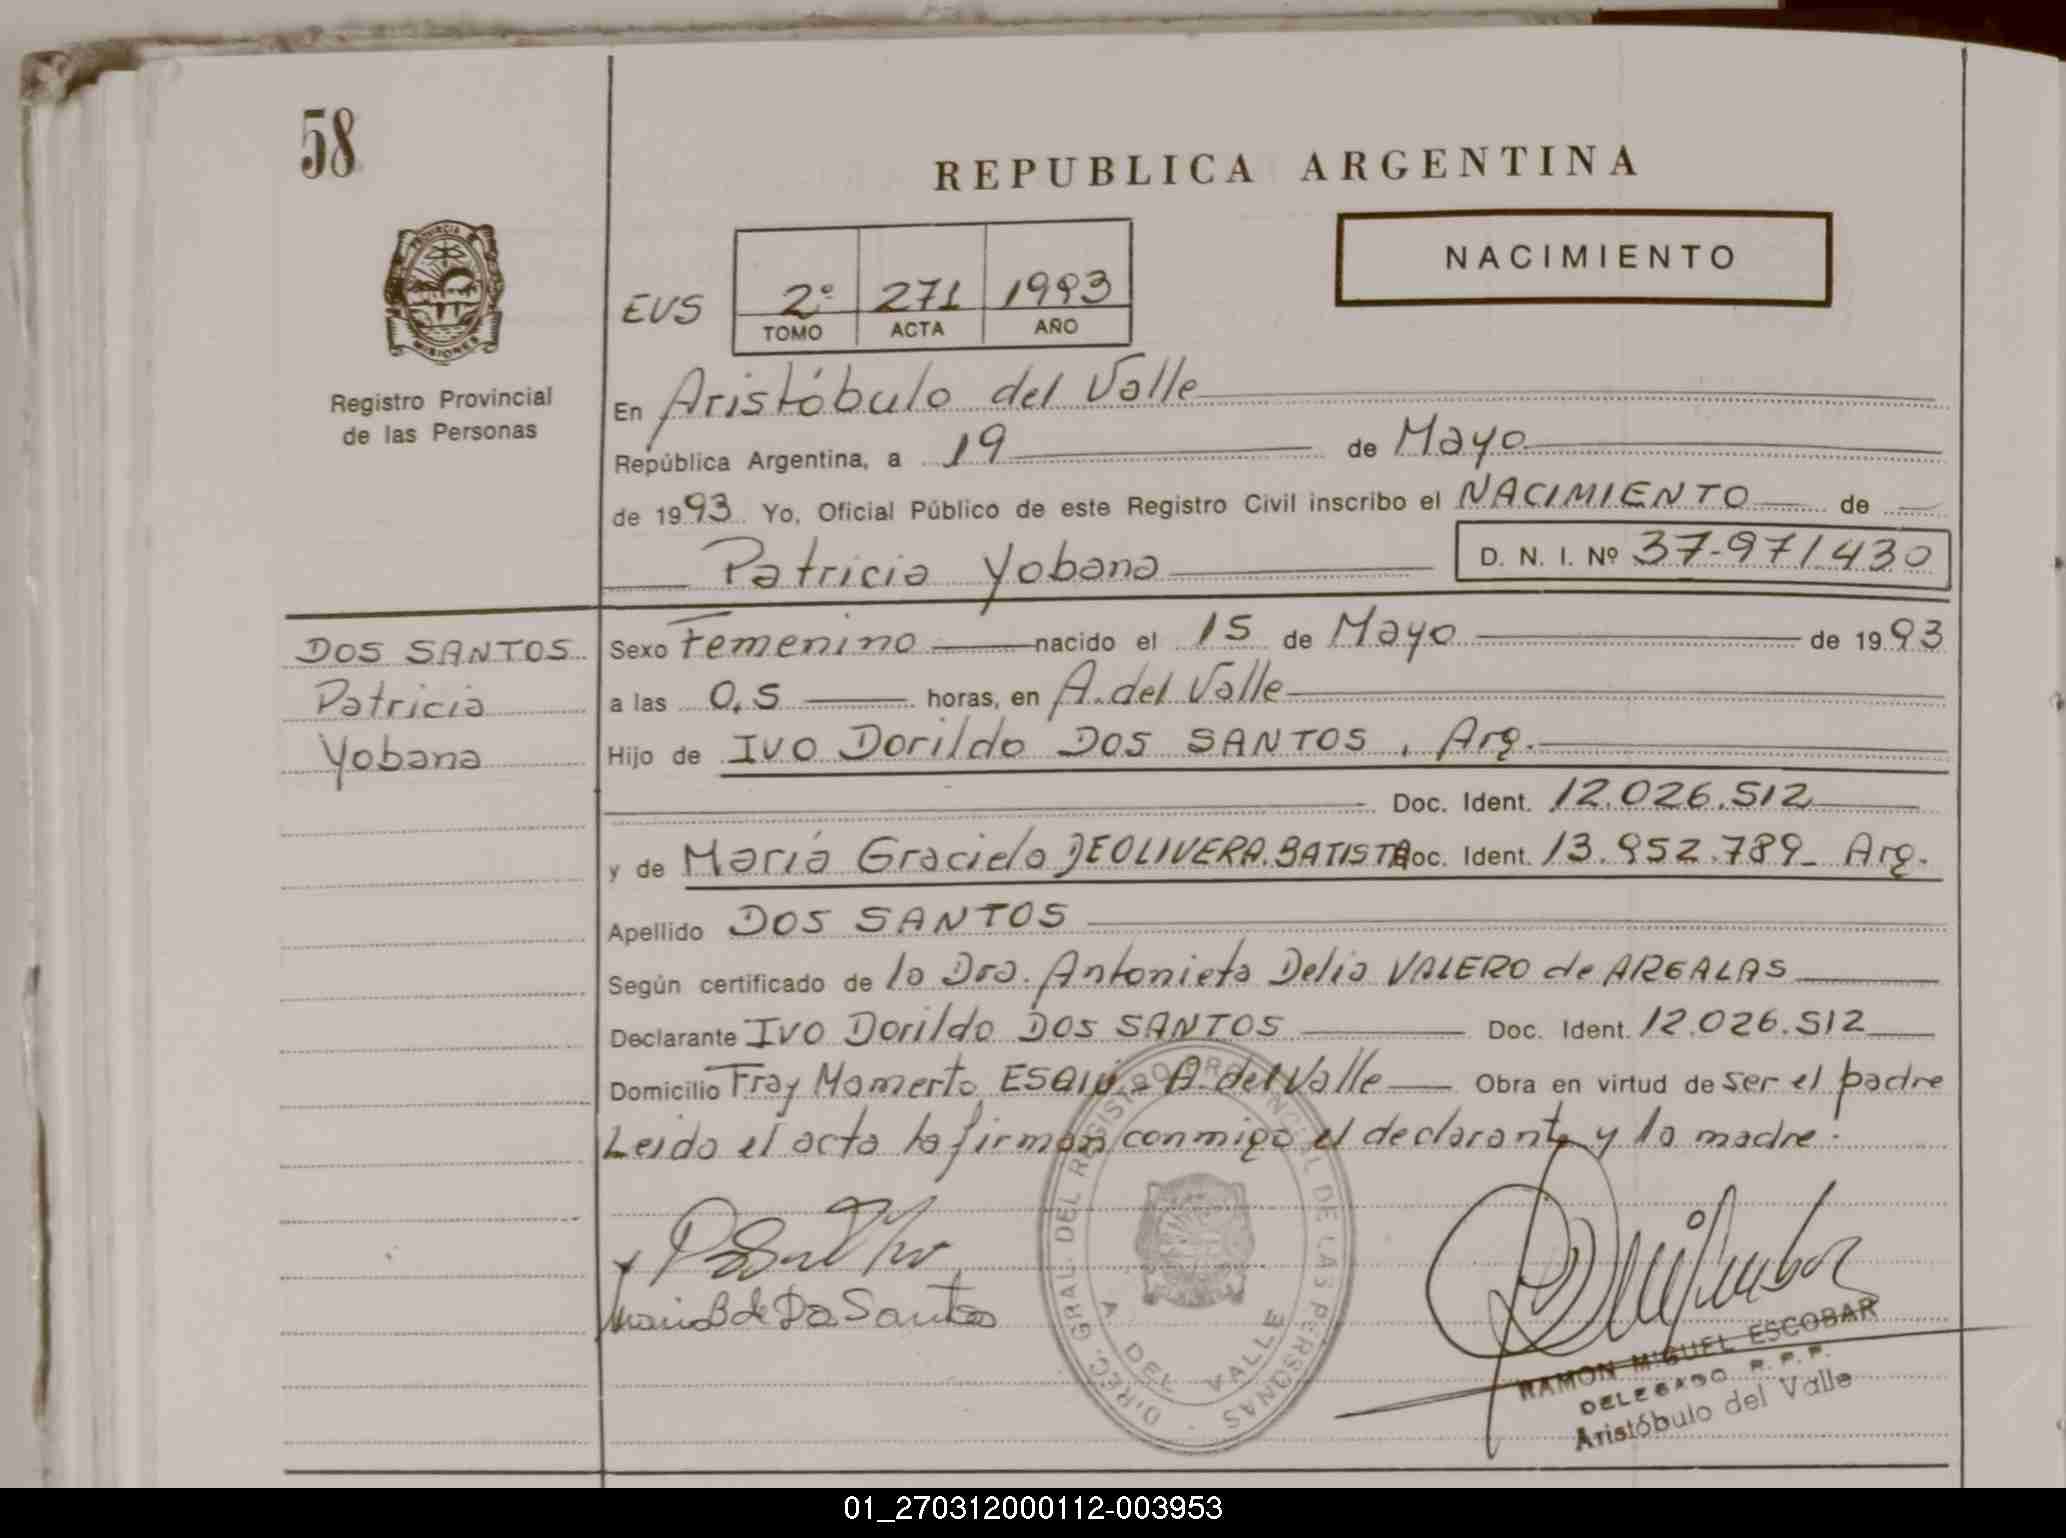 58
REPUBLICA ARGENTINA
NACIMIENTO
PROVINCIA
MISIONES
EVS 2º 271 1993
TOMO ACTA AÑO
Registro Provincial
de las Personas
En Aristóbulo del Valle
República Argentina, a 19 de Mayo
de 1993 Yo, Oficial Público de este Registro Civil inscribo el NACIMIENTO de
Patricia Yobana D. N. I. Nº 37-971430
DOS SANTOS
Patricia
Yobana
Sexo Femenino nacido el 15 de Mayo de 1993
a las 0,5 horas, en A. del Valle
Hijo de IVO Dorildo DOS SANTOS, Arg.
Doc. Ident. 12.026.512
y de María Graciela DEOLIVERA.BATISTA Doc. Ident. 13.952.789_ Arg.
Apellido DOS SANTOS
Según certificado de la Dra. Antonieta Delia VALERO de ARGALAS
Declarante IVO Dorildo DOS SANTOS Doc. Ident. 12.026.512
Domicilio Fray Mamerto ESQIÚ - A. del Valle Obra en virtud de ser el padre
Leido el acta la firman conmigo el declarante y la madre.
DIREC. GRAL. DEL REGISTRO PROVINCIAL DE LAS PERSONAS
A. DEL VALLE
RAMON MIGUEL ESCOBAR
DELEGADO R. P. P.
Aristóbulo del Valle
01_270312000112-003953